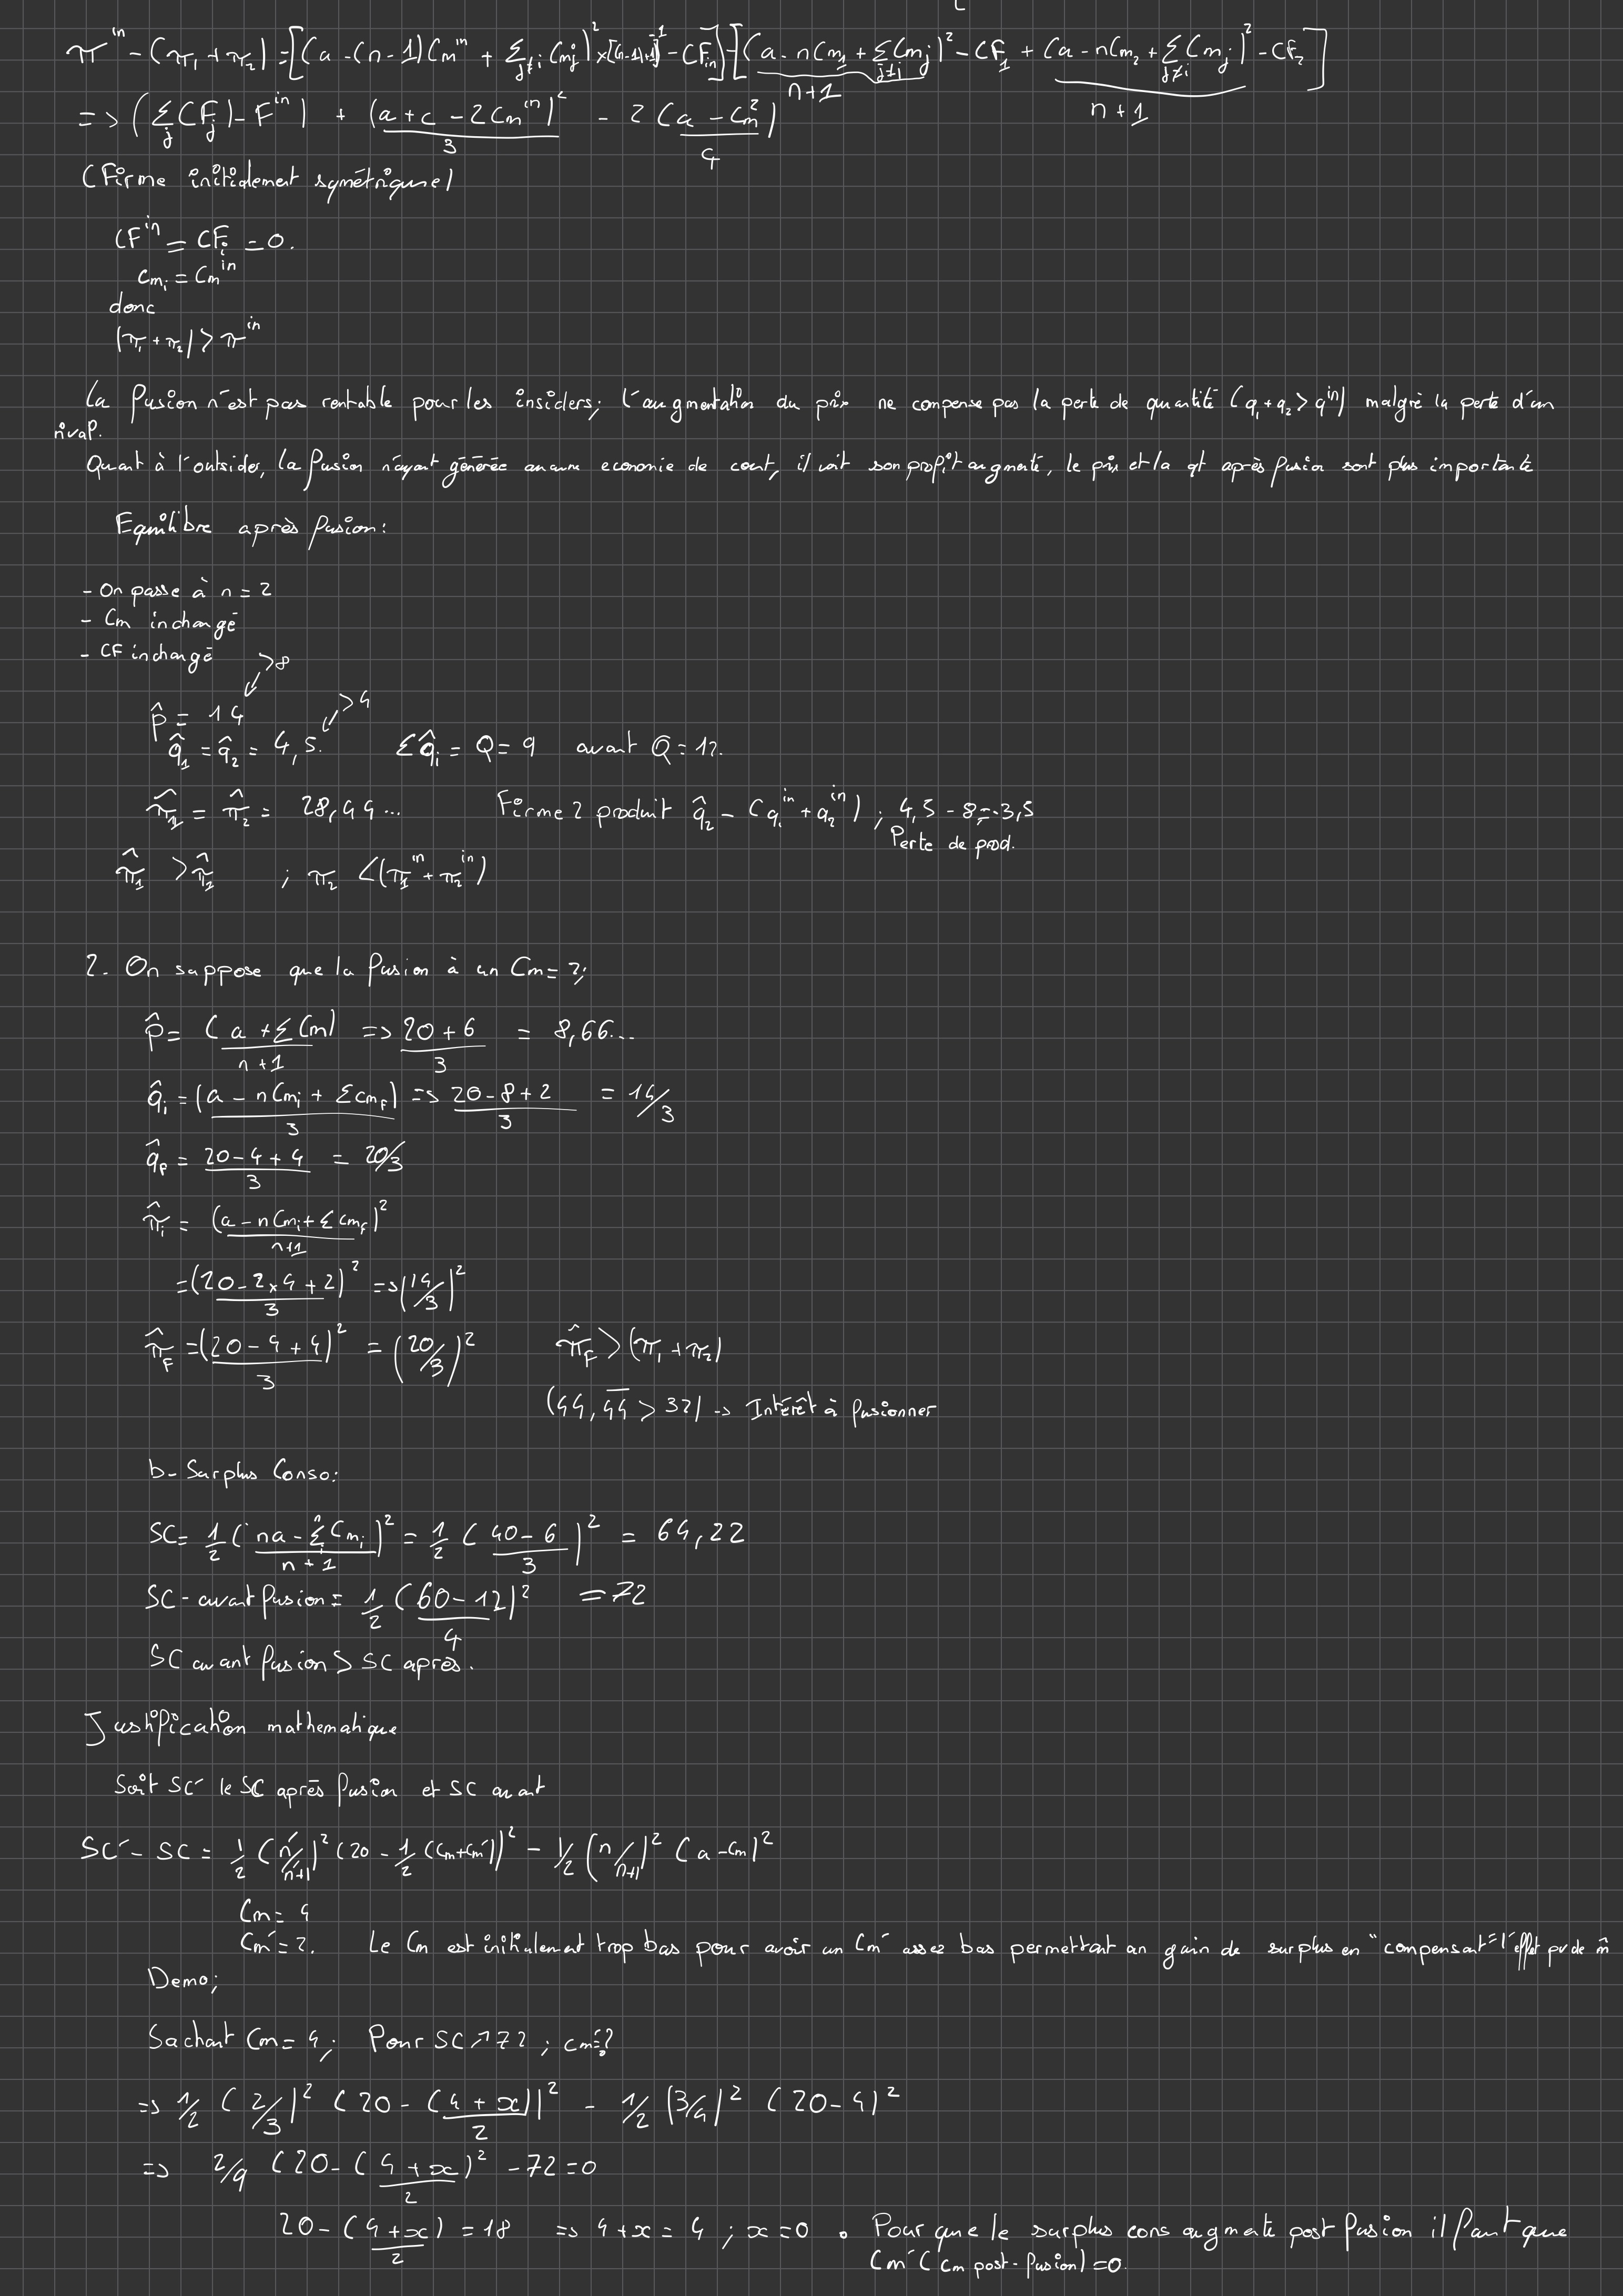 π^in - (π₁ + π₂) = [(a - (n-1) Cm^in + Σ_{j≠i} Cmj)² × [(n-1)+1]^-1 - CF_in] - [(a - n Cm₁ + Σ_{j≠i} Cmj)²/(n+1) - CF₁ + (a - nCm₂ + Σ_{j≠i} Cmj)²/(n+1) - CF₂]
=> (Σ_j CF_j) - F^in) + (a + c - 2Cm^in)²/3 - 2 (a - Cm²)/4
(Firme initialement symétrique)
CF^in = CFi = 0.
Cmi = Cm^in
donc
(π₁ + π₂) > π^in
La fusion n'est pas rentable pour les insiders; l'augmentation du prix ne compense pas la perte de quantité (q₁ + q₂ > q^in) malgré la perte d'un
rival.
Quant à l'outsider, la fusion n'ayant générée aucune economie de cout, il voit son profit augmenté, le prix et la qt après fusion sont plus importante
Equilibre après fusion:
- On passe à n = 2
- Cm inchangé
- CF inchangé
>8
p̂ = 14
>4
q̂₁ = q̂₂ = 4,5. Σq̂i = Q = 9 avant Q = 12.
π̂₁ = π̂₂ = 28,44... Firme 2 produit q̂₂ - (q₁^in + q₂^in) ; 4,5 - 8 = -3,5
Perte de prod.
π̂₁ > π̂₂ ; π₂ < (π₁^in + π₂^in)
2. On suppose que la fusion à un Cm = 2;
p̂ = (a + ΣCm)/(n+1) => (20 + 6)/3 = 8,66...
q̂i = (a - nCmi + ΣcmF)/3 => (20 - 8 + 2)/3 = 14/3
q̂F = (20 - 4 + 4)/3 = 20/3
π̂i = ((a - nCmi + ΣcmF)/(n+1))²
= ((20 - 2×4 + 2)/3)² => (14/3)²
π̂F = ((20 - 4 + 4)/3)² = (20/3)² π̂F > (π₁ + π₂)
(44,44 > 32) -> Intérêt à fusionner
b- Surplus Conso:
SC = 1/2 ((na - Σⁿ Cmi)/(n+1))² = 1/2 ((40 - 6)/3)² = 64,22
SC - avant fusion = 1/2 ((60 - 12)/4)² = 72
SC avant fusion > SC après.
Justification mathematique
Soit SC' le SC après fusion et SC avant
SC' - SC = 1/2 (n'/n'+1)² (20 - 1/2 (Cm + Cm'))² - 1/2 (n/n+1)² (a - Cm)²
Cm = 4
Cm' = 2. Le Cm est initialement trop bas pour avoir un Cm' assez bas permettant un gain de surplus en "compensant" l'effet pv de m̂
Demo;
Sachant Cm = 4; Pour SC ↗ 72 ; cm' = ?
=> 1/2 (2/3)² (20 - (4 + x)/2)² - 1/2 (3/4)² (20 - 4)²
=> 2/9 (20 - (4 + x)/2)² - 72 = 0
20 - (4 + x)/2 = 18 => 4 + x = 4 ; x = 0 • Pour que le surplus cons augmente post fusion il faut que
Cm' (Cm post-fusion) = 0.